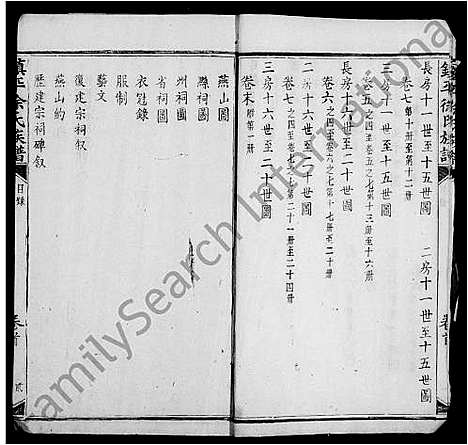 鎮平徐氏族譜
長房十一世至十五世圖 二房十一世至十五世圖
卷七第十册至第十二册
三房十一世至十五世圖
卷五之四至卷五之七第十三册至十六册
長房十六世至二十世圖
卷六之四至卷六之七第十七册至二十册
二房十六世至二十世圖
卷七之四至卷七之七第二十一册至二十四册
三房十六世至二十世圖
卷末附第一册
卷首
燕山圖
縣祠圖
州祠圖
省祠圖
衣冠錄
服制
藝文
復建宗祠叙
燕山約
歷建宗祠碑叙
鎮平徐氏族譜
目錄
卷首
貳
FamilySearch International